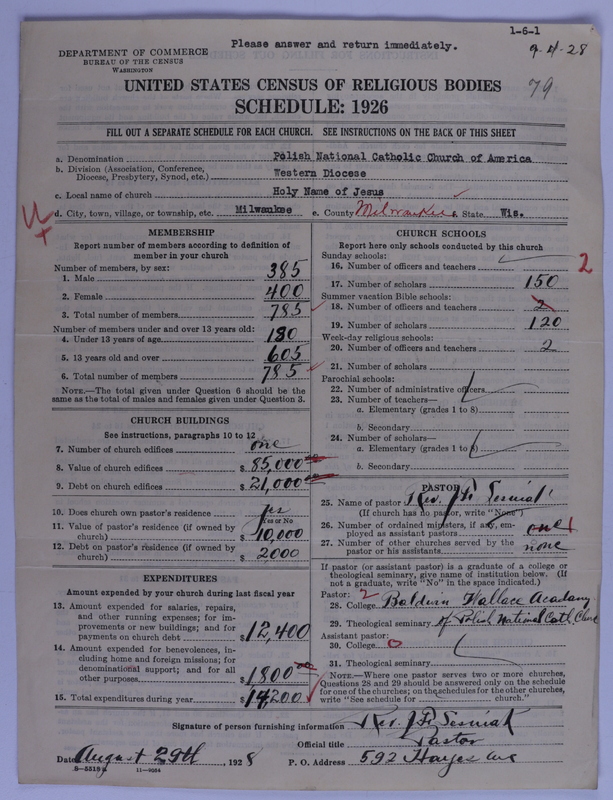 1-6-1
Please answer and return immediately.
9-4-28
DEPARTMENT OF COMMERCE
BUREAU OF THE CENSUS
WASHINGTON
79
UNITED STATES CENSUS OF RELIGIOUS BODIES
SCHEDULE: 1926
FILL OUT A SEPARATE SCHEDULE FOR EACH CHURCH. SEE INSTRUCTIONS ON THE BACK OF THIS SHEET
a. Denomination Polish National Catholic Church of America
b. Division (Association, Conference, Diocese, Presbytery, Synod, etc.) Western Diocese
c. Local name of church Holy Name of Jesus
d. City, town, village, or township, etc. Milwaukee e. County Milwaukee f. State Wis.
MEMBERSHIP
Report number of members according to definition of
member in your church
Number of members, by sex:
1. Male 385
2. Female 400
3. Total number of members 785
Number of members under and over 13 years old:
4. Under 13 years of age 180
5. 13 years old and over 605
6. Total number of members 785
NOTE.—The total given under Question 6 should be the
same as the total of males and females given under Question 3.
CHURCH BUILDINGS
See instructions, paragraphs 10 to 12
7. Number of church edifices one
8. Value of church edifices $ 85,000.00
9. Debt on church edifices $ 21,000.00
10. Does church own pastor's residence? yes
Yes or No
11. Value of pastor's residence (if owned by
church) $ 10,000
12. Debt on pastor's residence (if owned by
church) $ 2000
EXPENDITURES
Amount expended by your church during last fiscal year
13. Amount expended for salaries, repairs,
and other running expenses; for im-
provements or new buildings; and for
payments on church debt $ 12,400
14. Amount expended for benevolences, in-
cluding home and foreign missions; for
denominational support; and for all
other purposes $ 1800.00
15. Total expenditures during year $ 14200
CHURCH SCHOOLS
Report here only schools conducted by this church
Sunday schools:
16. Number of officers and teachers 2
17. Number of scholars 150
Summer vacation Bible schools:
18. Number of officers and teachers 2
19. Number of scholars 120
Week-day religious schools:
20. Number of officers and teachers 2
21. Number of scholars
Parochial schools:
22. Number of administrative officers
23. Number of teachers—
a. Elementary (grades 1 to 8)
b. Secondary
24. Number of scholars—
a. Elementary (grades 1 to 8)
b. Secondary
PASTOR
25. Name of pastor Rev.
(If church has no pastor, write "None")
26. Number of ordained ministers, if any, em-
ployed as assistant pastors one 1
27. Number of other churches served by the
pastor or his assistants none
If pastor (or assistant pastor) is a graduate of a college or
theological seminary, give name of institution below. (If
not a graduate, write "No" in the space indicated.)
Pastor: 2
28. College Baldwin Wallace Academy
29. Theological seminary of Polish National Cath. Church
Assistant pastor:
30. College 0
31. Theological seminary
NOTE.—Where one pastor serves two or more churches,
Questions 28 and 29 should be answered only on the schedule
for one of the churches; on the schedules for the other churches,
write "See schedule for church."
Signature of person furnishing information Rev.
Official title Pastor
Date August 29th, 1928 P. O. Address 592 Hayes Ave
8-5518a 11-9064